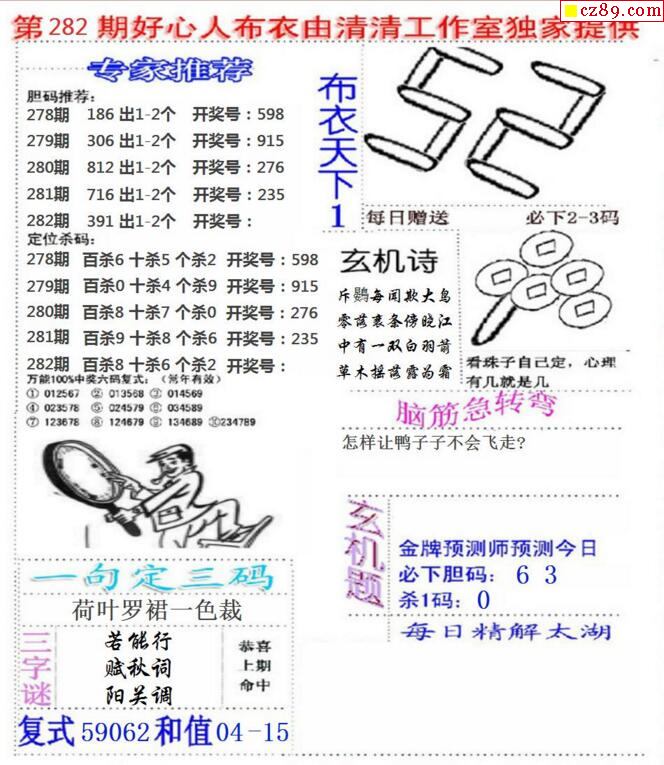 cz89.com
第282期好心人布衣由清清工作室独家提供
专家推荐
胆码推荐:
278期 186 出1-2个 开奖号：598
279期 306 出1-2个 开奖号：915
280期 812 出1-2个 开奖号：276
281期 716 出1-2个 开奖号：235
282期 391 出1-2个 开奖号：
定位杀码:
278期 百杀6 十杀5 个杀2 开奖号：598
279期 百杀0 十杀4 个杀9 开奖号：915
280期 百杀8 十杀7 个杀0 开奖号：276
281期 百杀9 十杀8 个杀6 开奖号：235
282期 百杀8 十杀6 个杀2 开奖号：
万能100%中奖六码复式:（常年有效）
① 012567 ② 013568 ③ 014569
④ 023578 ⑤ 024579 ⑥ 034589
⑦ 123678 ⑧ 124679 ⑨ 134689 ⑩234789
布衣天下1
每日赠送 必下2-3码
玄机诗
斥鷃每闻欺大鸟
零落衰条傍晓江
中有一双白羽箭
草木摇落露为霜
看珠子自己定，心理
有几就是几
脑筋急转弯
怎样让鸭子子不会飞走?
一句定三码
荷叶罗裙一色裁
三字谜
苦能行
赋秋词
阳关调
恭喜
上期
命中
玄机题
金牌预测师预测今日
必下胆码： 6 3
杀1码： 0
每日精解太湖
复式59062和值04-15